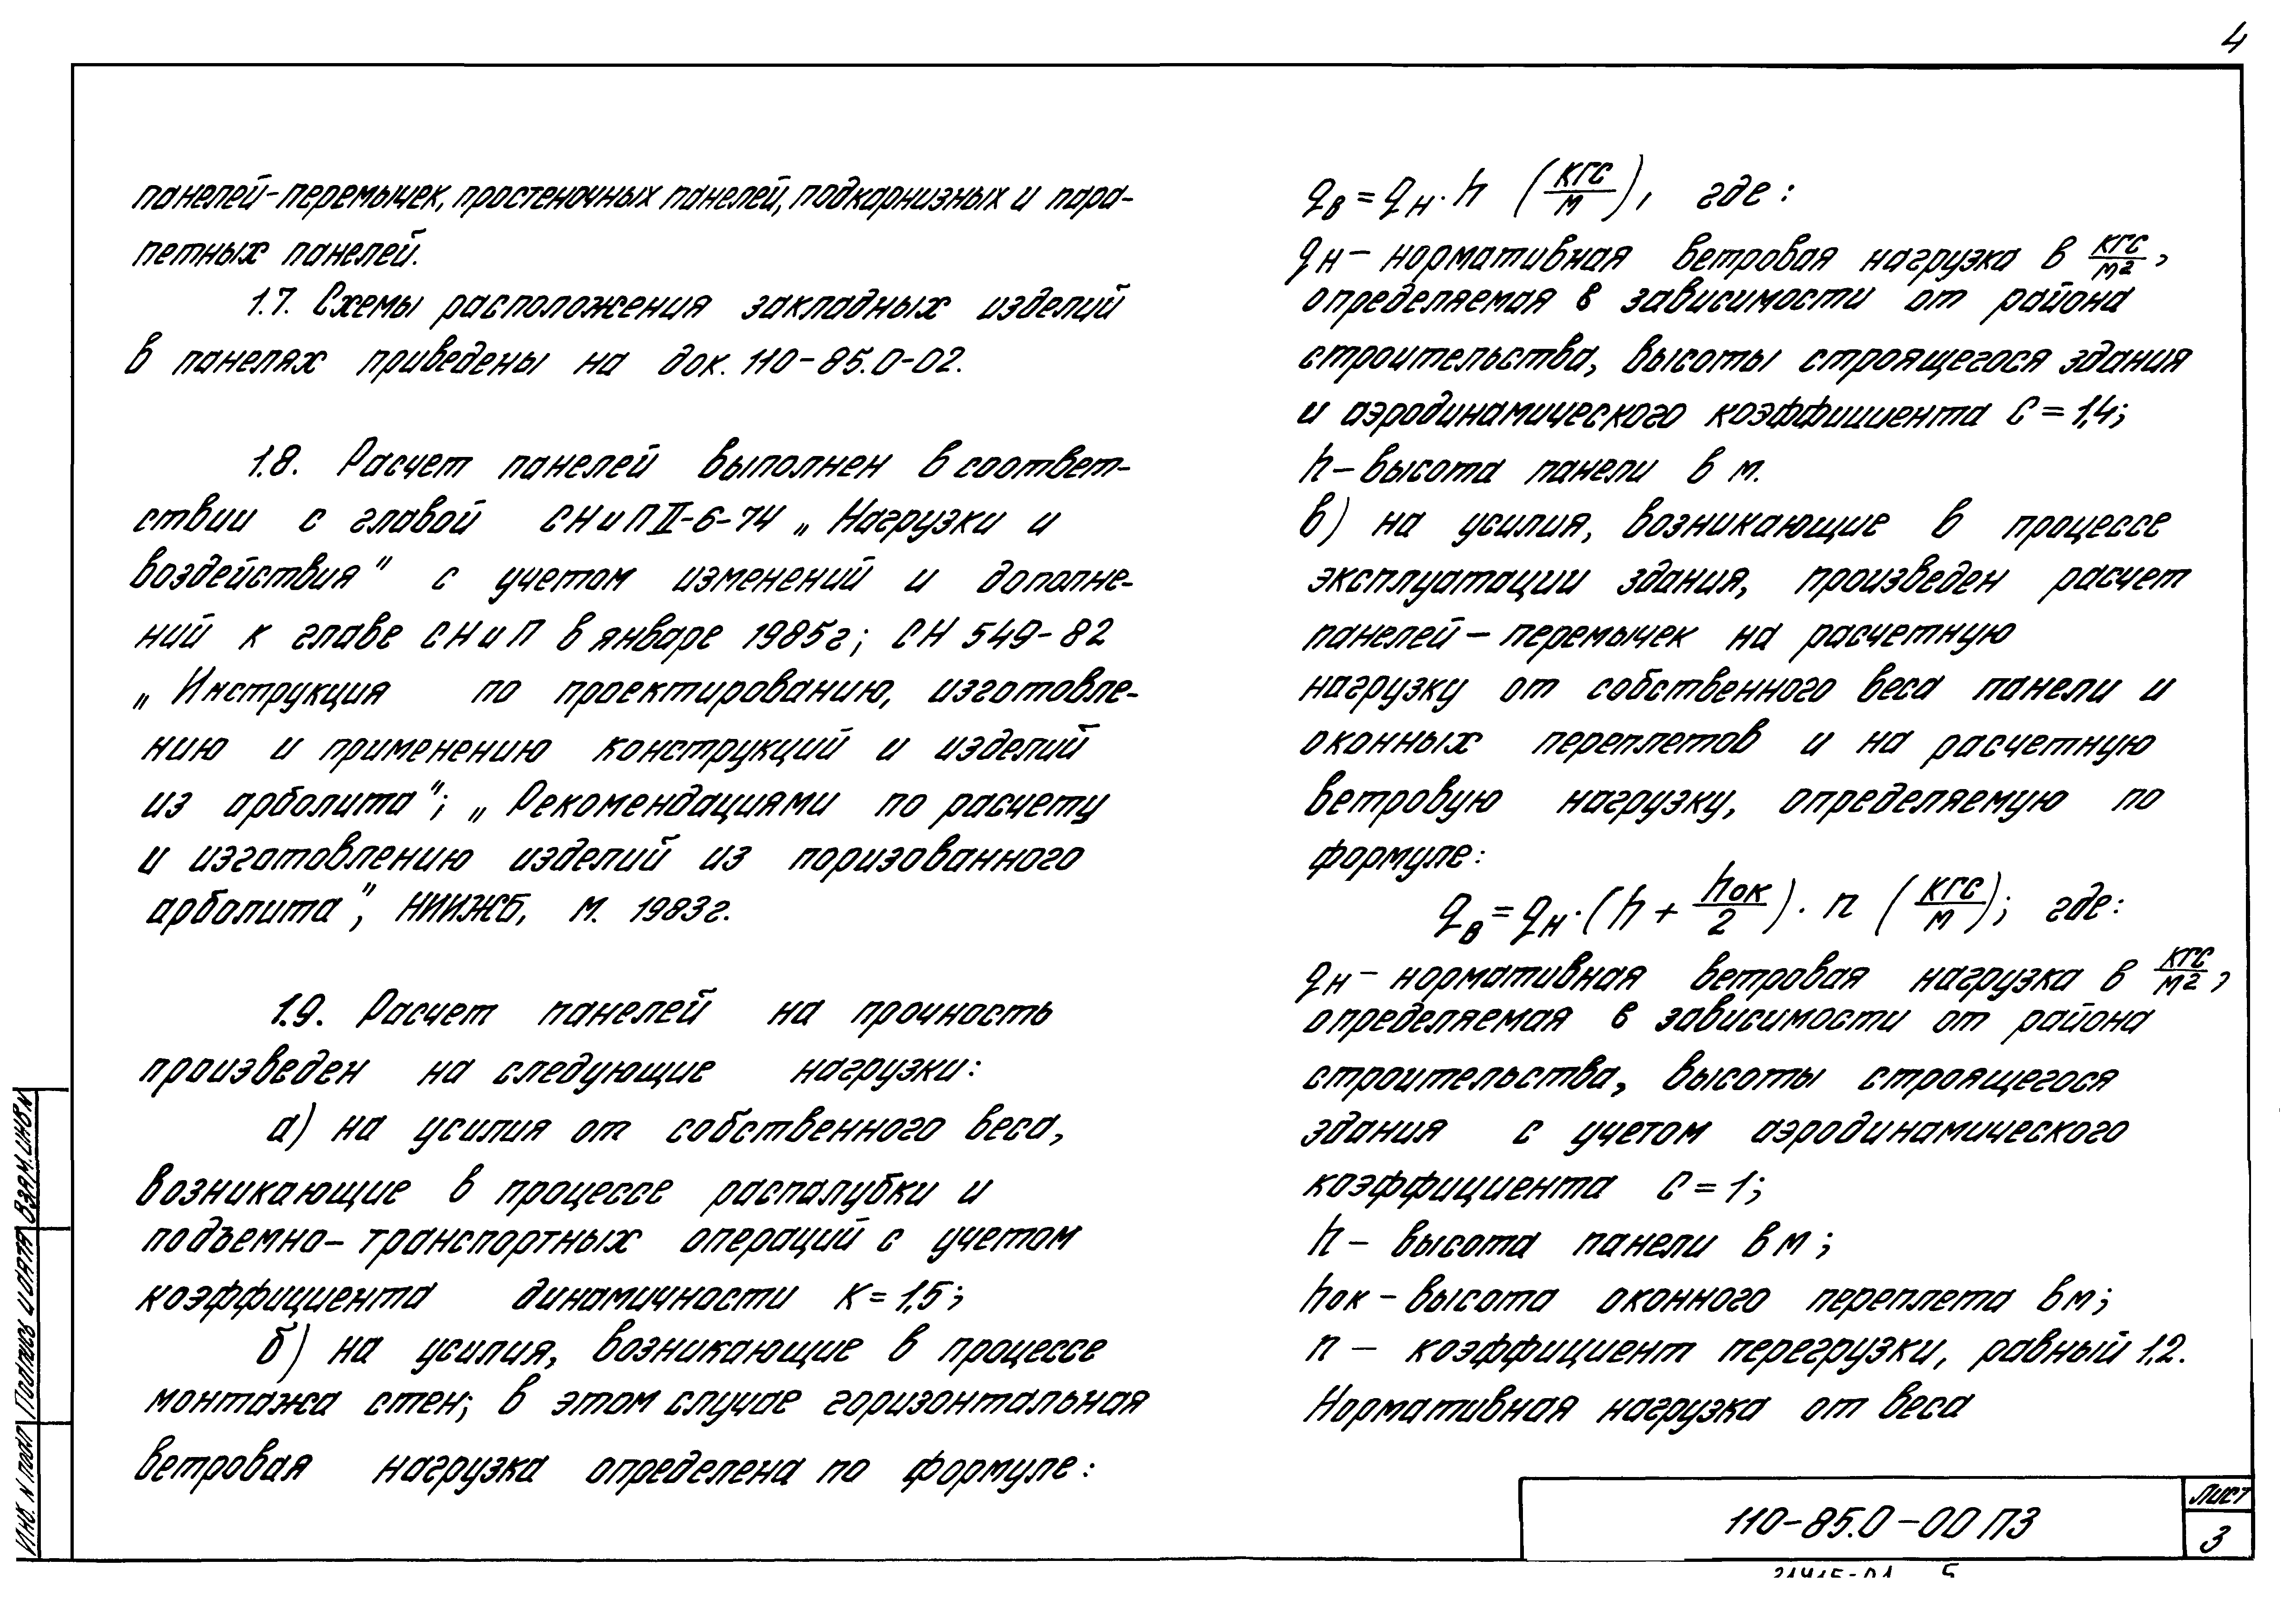 4
панелей-перемычек, простеночных панелей, подкарнизных и пара-
петных панелей.
1.7. Схемы расположения закладных изделий
в панелях приведены на док. 110-85.0-02.
1.8. Расчет панелей выполнен в соответ-
ствии с главой СНиП II-6-74 „Нагрузки и
воздействия" с учетом изменений и дополне-
ний к главе СНиП в январе 1985г; СН 549-82
„Инструкция по проектированию, изготовле-
нию и применению конструкций и изделий
из арболита"; „Рекомендациями по расчету
и изготовлению изделий из поризованного
арболита", НИИЖБ, М. 1983г.
1.9. Расчет панелей на прочность
произведен на следующие нагрузки:
а) на усилия от собственного веса,
возникающие в процессе распалубки и
подъемно-транспортных операций с учетом
коэффициента динамичности К=1,5;
б) на усилия, возникающие в процессе
монтажа стен; в этом случае горизонтальная
ветровая нагрузка определена по формуле:
qв = qн · h (кгс/м), где:
qн – нормативная ветровая нагрузка в кгс/м²,
определяемая в зависимости от района
строительства, высоты строящегося здания
и аэродинамического коэффициента С=1,4;
h – высота панели в м.
в) на усилия, возникающие в процессе
эксплуатации здания, произведен расчет
панелей – перемычек на расчетную
нагрузку от собственного веса панели и
оконных переплетов и на расчетную
ветровую нагрузку, определяемую по
формуле:
qв = qн · (h + hок/2) · n (кгс/м); где:
qн – нормативная ветровая нагрузка в кгс/м²,
определяемая в зависимости от района
строительства, высоты строящегося
здания с учетом аэродинамического
коэффициента С=1;
h – высота панели в м;
hок – высота оконного переплета в м;
n – коэффициент перегрузки, равный 1,2.
Нормативная нагрузка от веса
Инв. N подл Подпись и дата Взам.инв N
110-85.0-00 ПЗ
Лист
3